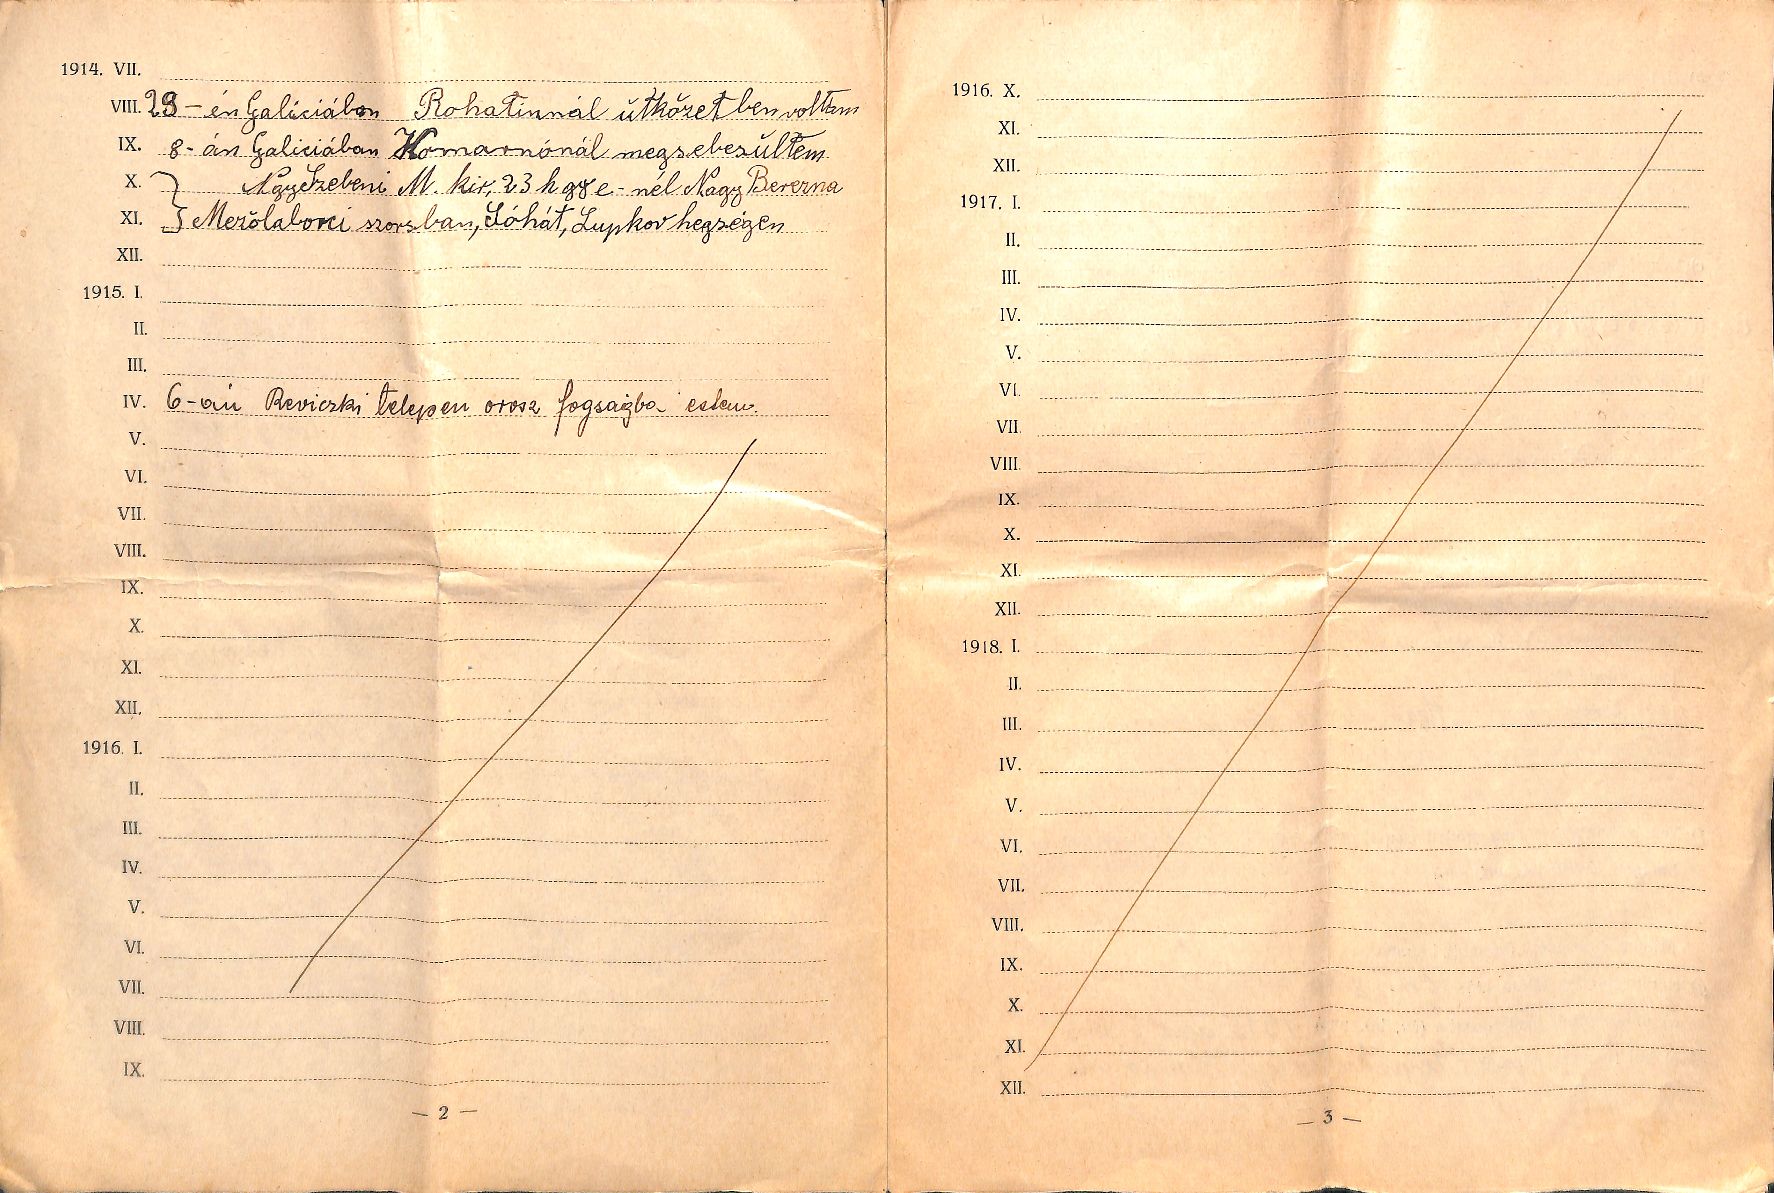 1914. VII.
VIII. 28-én Galíciában Rohatinnál ütközetben voltam
IX. 8-án Galiciában Komarnónál megsebesültem
X. NagySzebeni M. kir. 23 h gy e-nél Nagy Berezna
XI. Mezőlaborci szorsban, Sóhát, Lupkov hegségen
XII.
1915. I.
II.
III.
IV. 6-án Reviczki telepen orosz fogságba estem.
V.
VI.
VII.
VIII.
IX.
X.
XI.
XII.
1916. I.
II.
III.
IV.
V.
VI.
VII.
VIII.
IX.
— 2 —
1916. X.
XI.
XII.
1917. I.
II.
III.
IV.
V.
VI.
VII.
VIII.
IX.
X.
XI.
XII.
1918. I.
II.
III.
IV.
V.
VI.
VII.
VIII.
IX.
X.
XI.
XII.
— 3 —